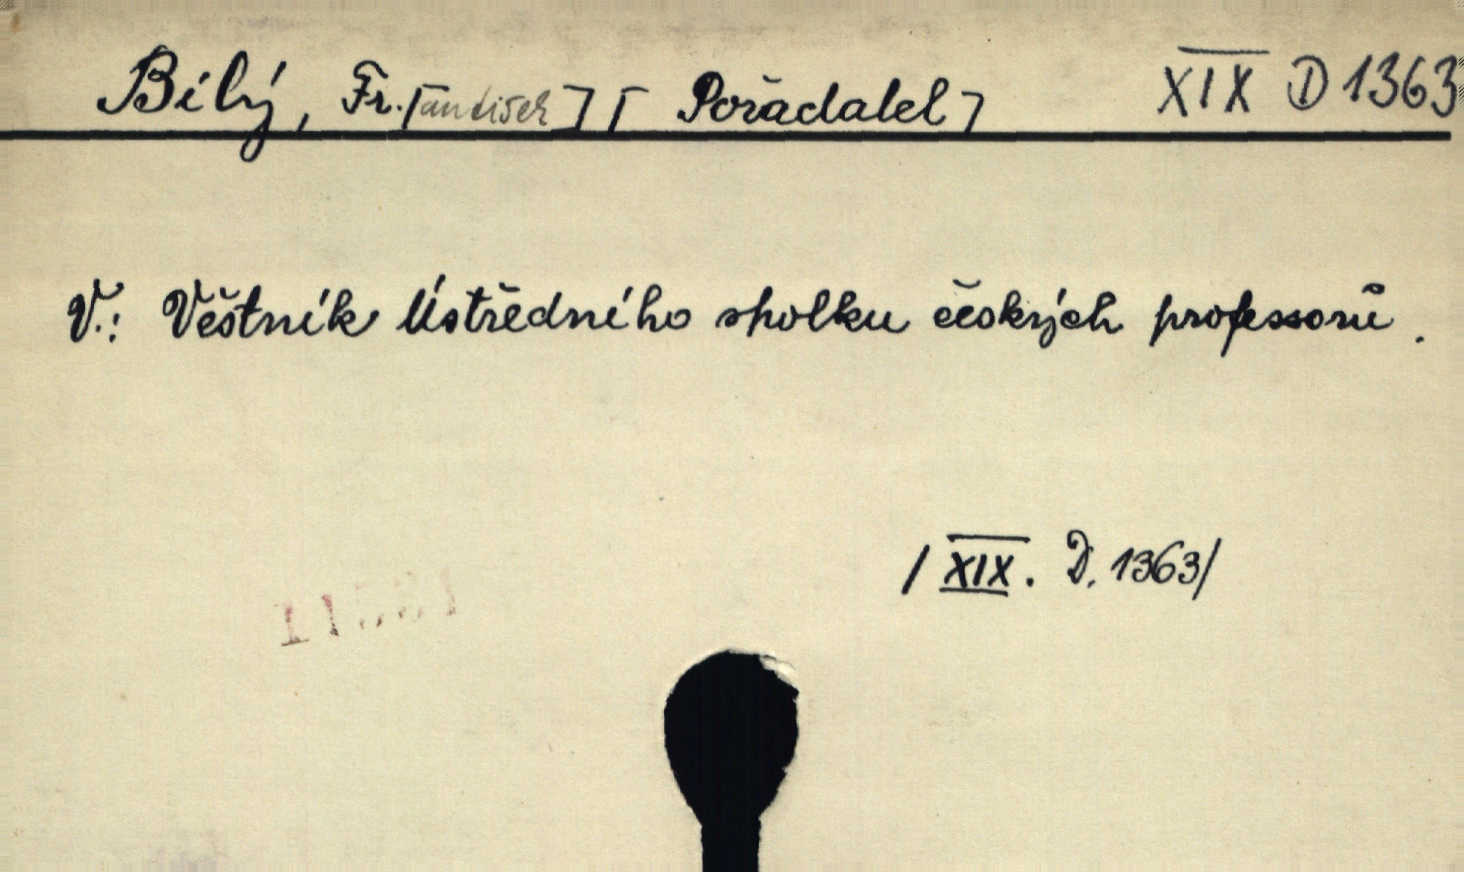 Bílý, Fr.[antišek] [Pořadatel] XIX D 1363
V.: Věstník Ústředního spolku českých professorů.
/XIX. D. 1363/